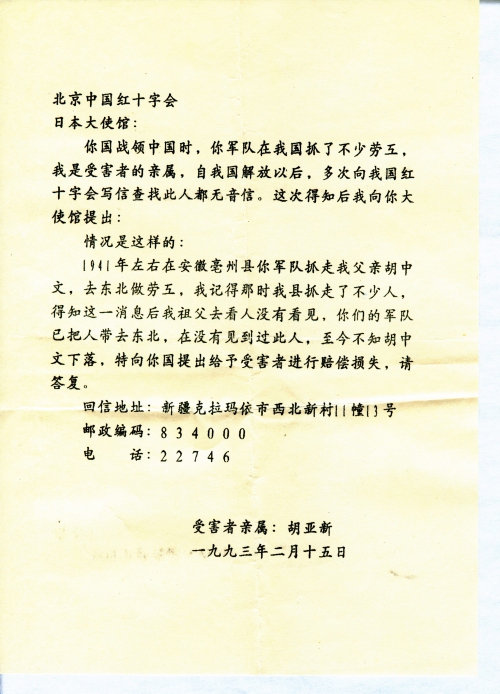 北京中国红十字会
日本大使馆：
你国战领中国时，你军队在我国抓了不少劳互，
我是受害者的亲属，自我国解放以后，多次向我国红
十字会写信查找此人都无音信。这次得知后我向你大
使馆提出：
情况是这样的：
1941年左右在安徽亳州县你军队抓走我父亲胡中
文，去东北做劳互，我记得那时我县抓走了不少人，
得知这一消息后我祖父去看人没有看见，你们的军队
已把人带去东北，在没有见到过此人，至今不知胡中
文下落，特向你国提出给予受害者进行赔偿损失，请
答复。
回信地址：新疆克拉玛依市西北新村11幢13号
邮政编码：834000
电　　话：22746
受害者亲属：胡亚新
一九九三年二月十五日